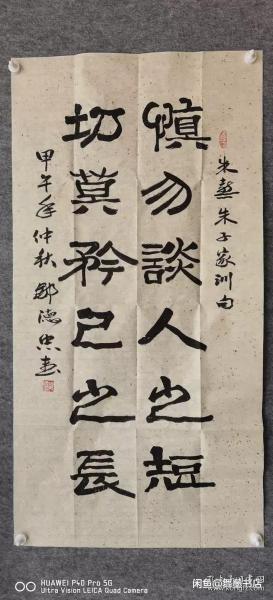 朱熹朱子家训句
慎勿談人之短
切莫矜己之長
甲午年仲秋鄒德忠書
HUAWEI P40 Pro 5G
Ultra Vision LEICA Quad Camera
闲鱼@
书店